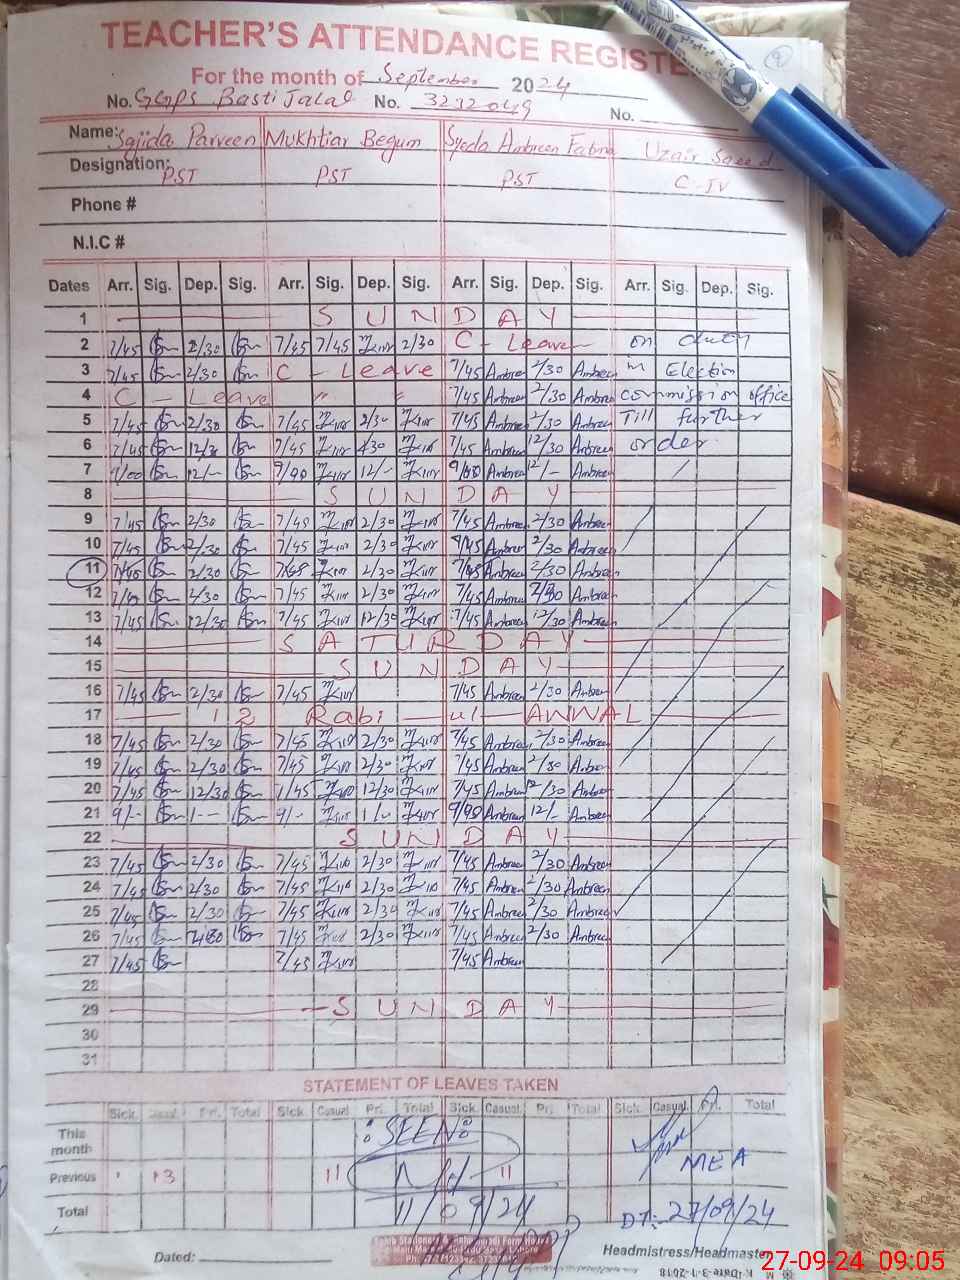 TEACHER'S ATTENDANCE REGISTE
For the month of September 2024
No. GGPS Basti Jalal No. 3232049 No.
Name: Sajida Parveen Mukhtiar Begum Syeda Ambreen Fatma Uzair Saeed
Designation: PST PST PST C-IV
Phone #
N.I.C #
Dates Arr. Sig. Dep. Sig. Arr. Sig. Dep. Sig. Arr. Sig. Dep. Sig. Arr. Sig. Dep. Sig.
1 SUNDAY
2 7/45 2/30 7/45 7/45 2/30 C - Leave on duty
3 7/45 2/30 C - Leave 7/45 Ambreen 2/30 Ambreen in Election
4 C - Leave " " 7/45 Ambreen 2/30 Ambreen commission office
5 7/45 2/30 7/45 2/30 7/45 Ambreen 2/30 Ambreen Till further
6 7/45 12/30 7/45 7/45 Ambreen 12/30 Ambreen order.
7 9/00 12/- 9/00 12/- 9/00 Ambreen 12/- Ambreen
8 SUNDAY
9 7/45 2/30 7/45 2/30 7/45 Ambreen 2/30 Ambreen
10 7/45 2/30 7/45 2/30 7/45 Ambreen 2/30 Ambreen
11 2/30 2/30 7/45 Ambreen 2/30 Ambreen
12 7/45 2/30 7/45 2/30 7/45 Ambreen 2/30 Ambreen
13 7/45 12/30 7/45 12/30 7/45 Ambreen 12/30 Ambreen
14 SATURDAY
15 SUNDAY
16 7/45 2/30 7/45 7/45 Ambreen 2/30 Ambreen
17 12 Rabi ul AWWAL
18 7/45 2/30 7/45 2/30 7/45 Ambreen 2/30 Ambreen
19 7/45 2/30 7/45 2/30 7/45 Ambreen 2/30 Ambreen
20 7/45 12/30 7/45 12/30 7/45 Ambreen 12/30 Ambreen
21 9/- 1-- 9/- 1/- 9/00 Ambreen 12/- Ambreen
22 SUNDAY
23 7/45 2/30 7/45 2/30 7/45 Ambreen 2/30 Ambreen
24 7/45 2/30 7/45 2/30 7/45 Ambreen 2/30 Ambreen
25 7/45 2/30 7/45 2/30 7/45 Ambreen 2/30 Ambreen
26 7/45 2/30 7/45 2/30 7/45 Ambreen 2/30 Ambreen
27 7/45 7/45 7/45 Ambreen
28
29 SUNDAY
30
31
STATEMENT OF LEAVES TAKEN
Sick. Casual. Pri. Total Sick. Casual Pri. Total Sick. Casual. Pri. Total Sick. Casual. Pri. Total
This month
SEEN
MEA
Previous 13 11 11
Total 11/09/24 DT: 27/09/24
Dated:
Headmistress/Headmaster
27-09-24 09:05